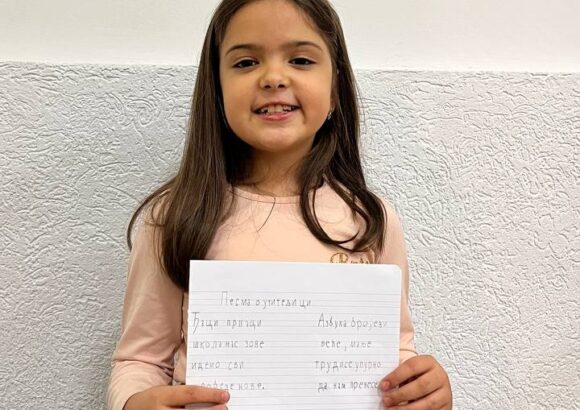 Песма о учитељици
Ђаци прваци
школа нас зове
идемо сви
нове.
Азбука бројеви
веће, мање
трудисе упорно
да нам